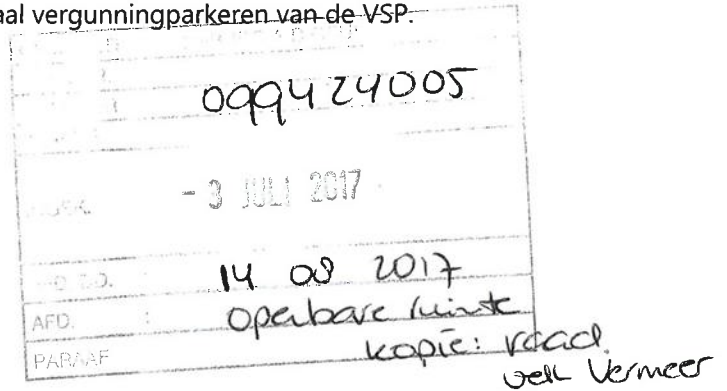 aal vergunningparkeren van de VSP.
099424005
- 3 JULI 2017
14 08 2017
AFD. : Openbare ruimte
PARAAF kopie: raad
Vermeer